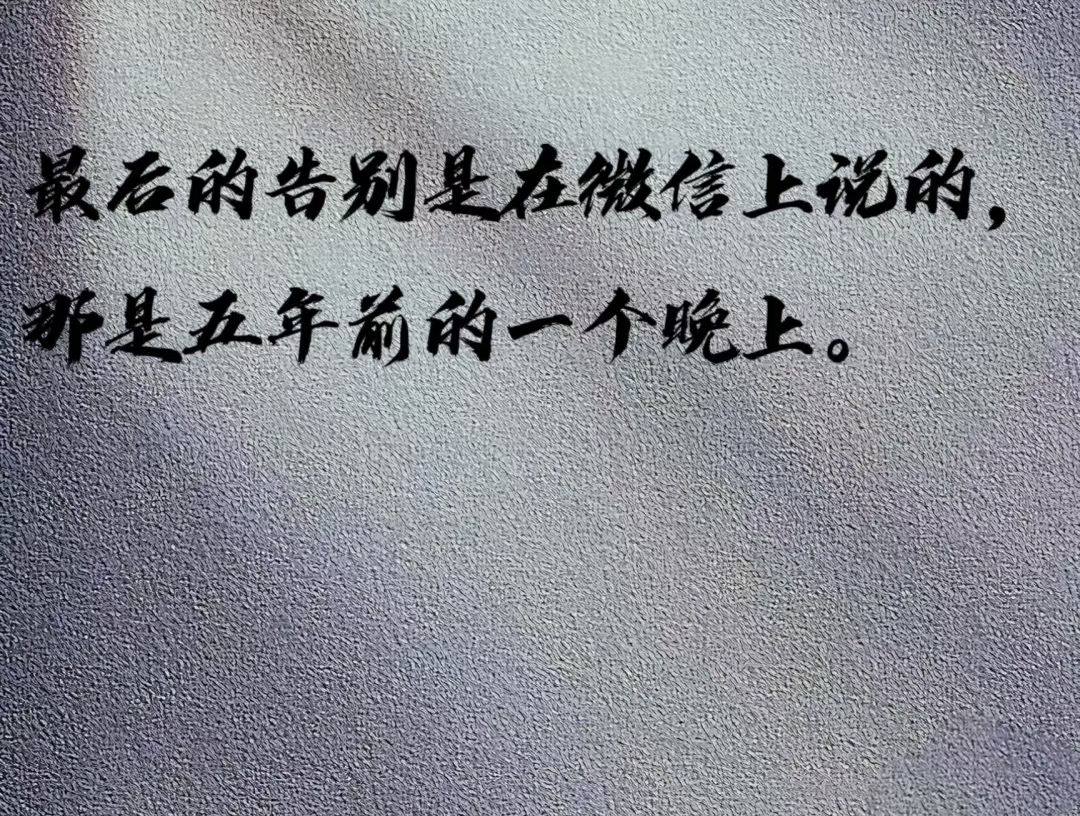 最后的告别是在微信上说的，
那是五年前的一个晚上。